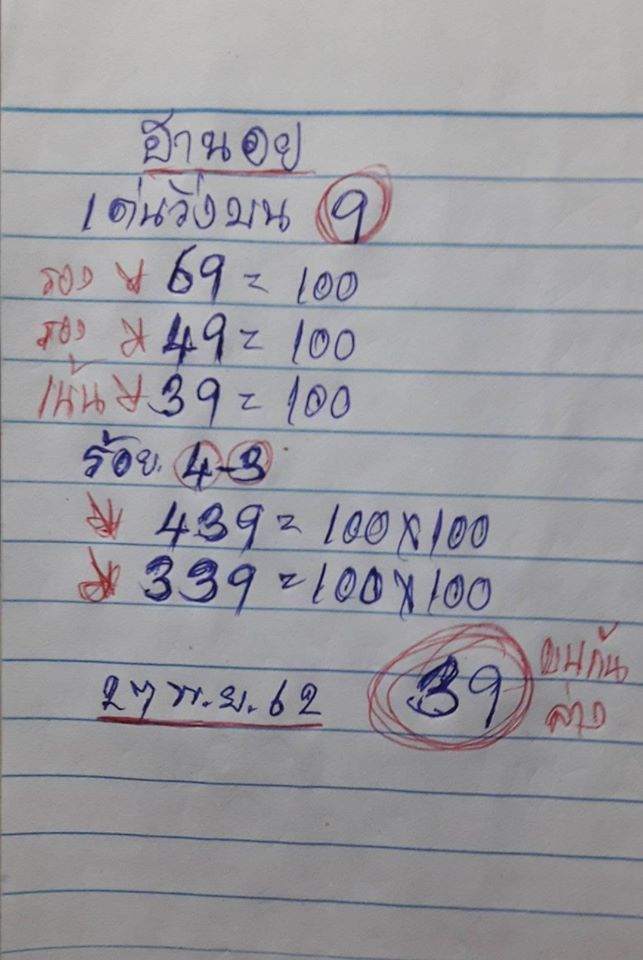 ฮานอย
เด่นวิ่งบน 9
รอง 69 = 100
รอง 49 = 100
เน้น 39 = 100
ร้อย. 4-3
439 = 100x100
339 = 100x100
39 บนกัน
27 พ.ย. 62 ล่าง